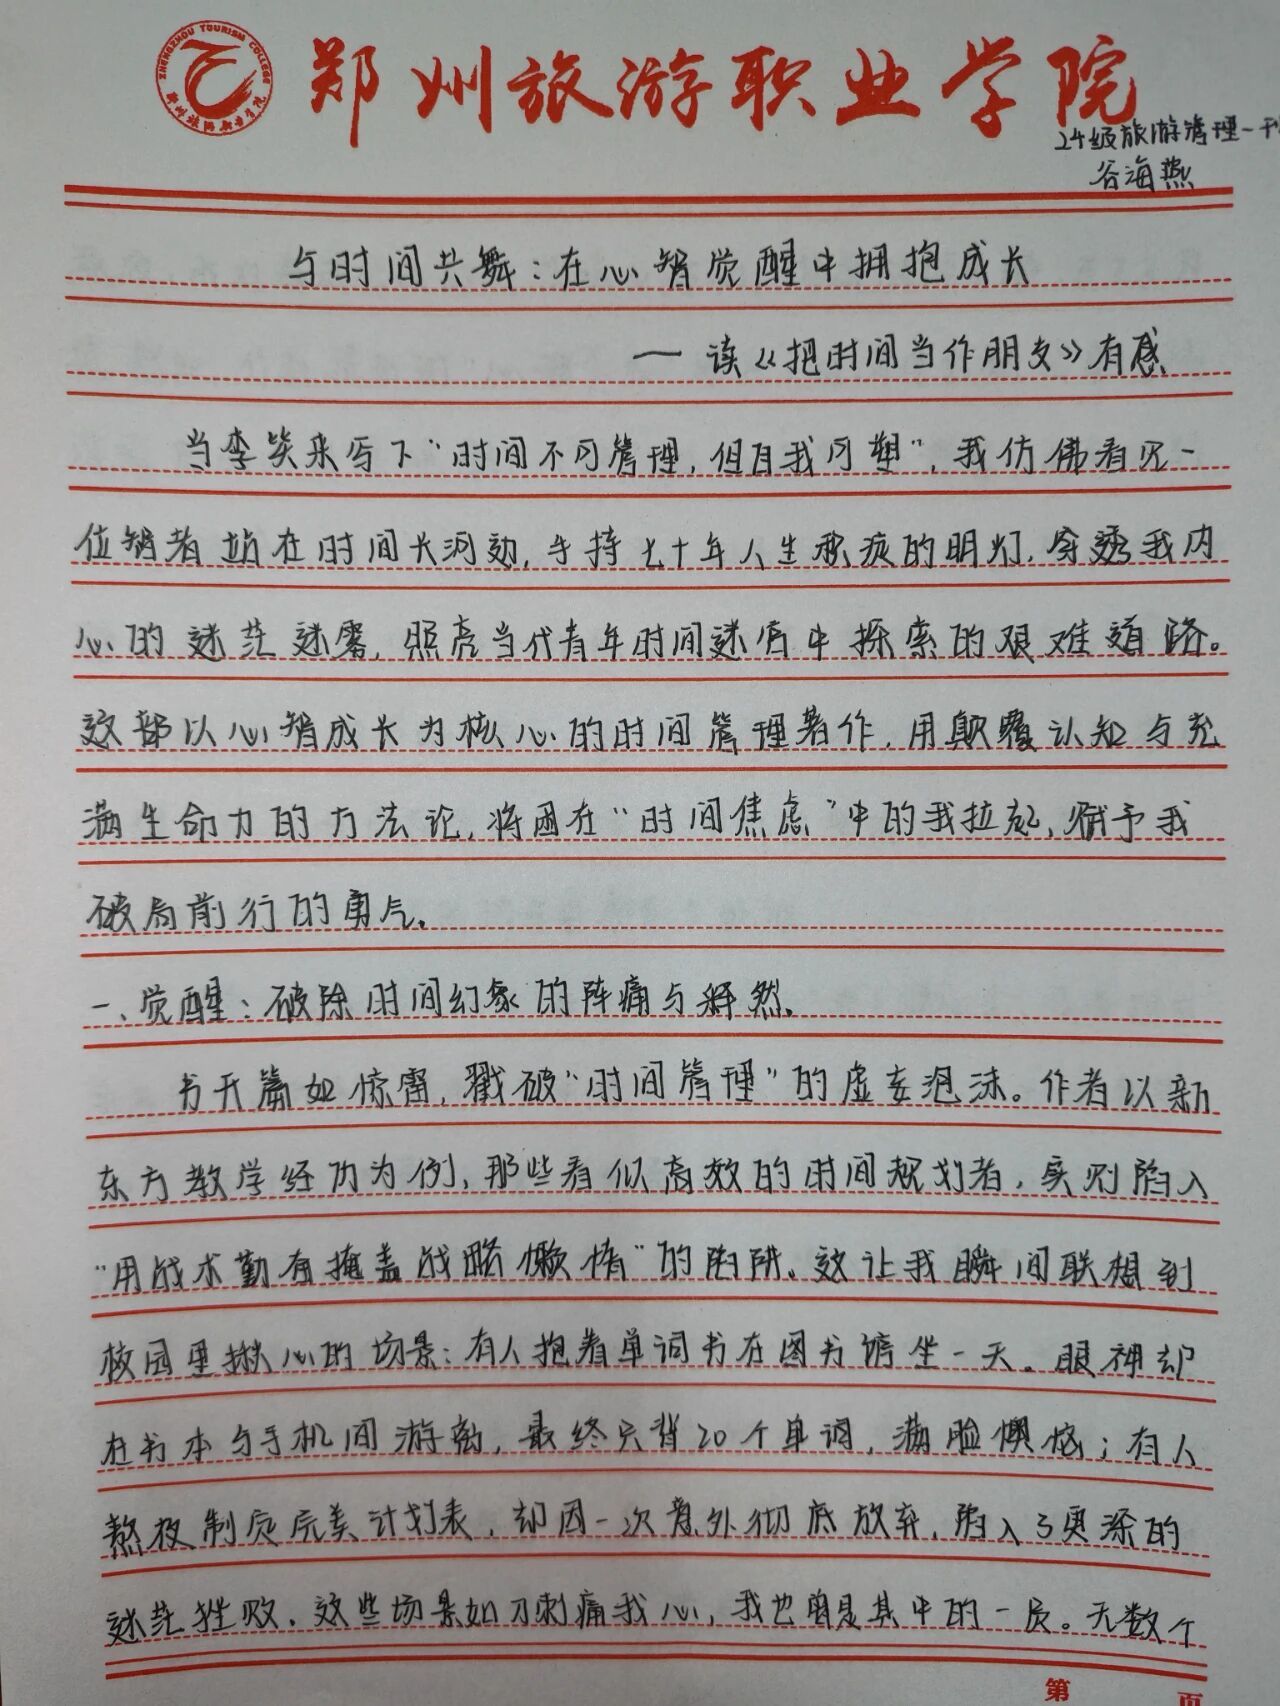 ZHENGZHOU TOURISM COLLEGE
郑州旅游职业学院
郑州旅游职业学院
24级旅游管理一班
谷海燕
与时间共舞：在心智觉醒中拥抱成长
— 读《把时间当作朋友》有感
当李笑来写下“时间不可管理，但自我可塑”，我仿佛看见一
位智者站在时间长河边，手持七十年人生积淀的明灯，穿透我内
心的迷茫迷雾，照亮当代青年时间迷宫中探索的艰难道路。
这部以心智成长为核心的时间管理著作，用颠覆认知与充
满生命力的方法论，将困在“时间焦虑”中的我拉起，赋予我
破局前行的勇气。
一、觉醒：破除时间幻象的阵痛与释然。
书开篇如惊雷，戳破“时间管理”的虚妄泡沫。作者以新
东方教学经历为例，那些看似高效的时间规划者，实则陷入
“用战术勤奋掩盖战略懒惰”的陷阱。这让我瞬间联想到
校园里揪心的场景：有人抱着单词书在图书馆坐一天。眼神却
在书本与手机间游离，最终只背20个单词，满脸懊恼；有人
熬夜制定完美计划表，却因一次意外彻底放弃，陷入了更深的
迷茫挫败。这些场景如刀刺痛我心，我也曾是其中的一员。无数个
第 页